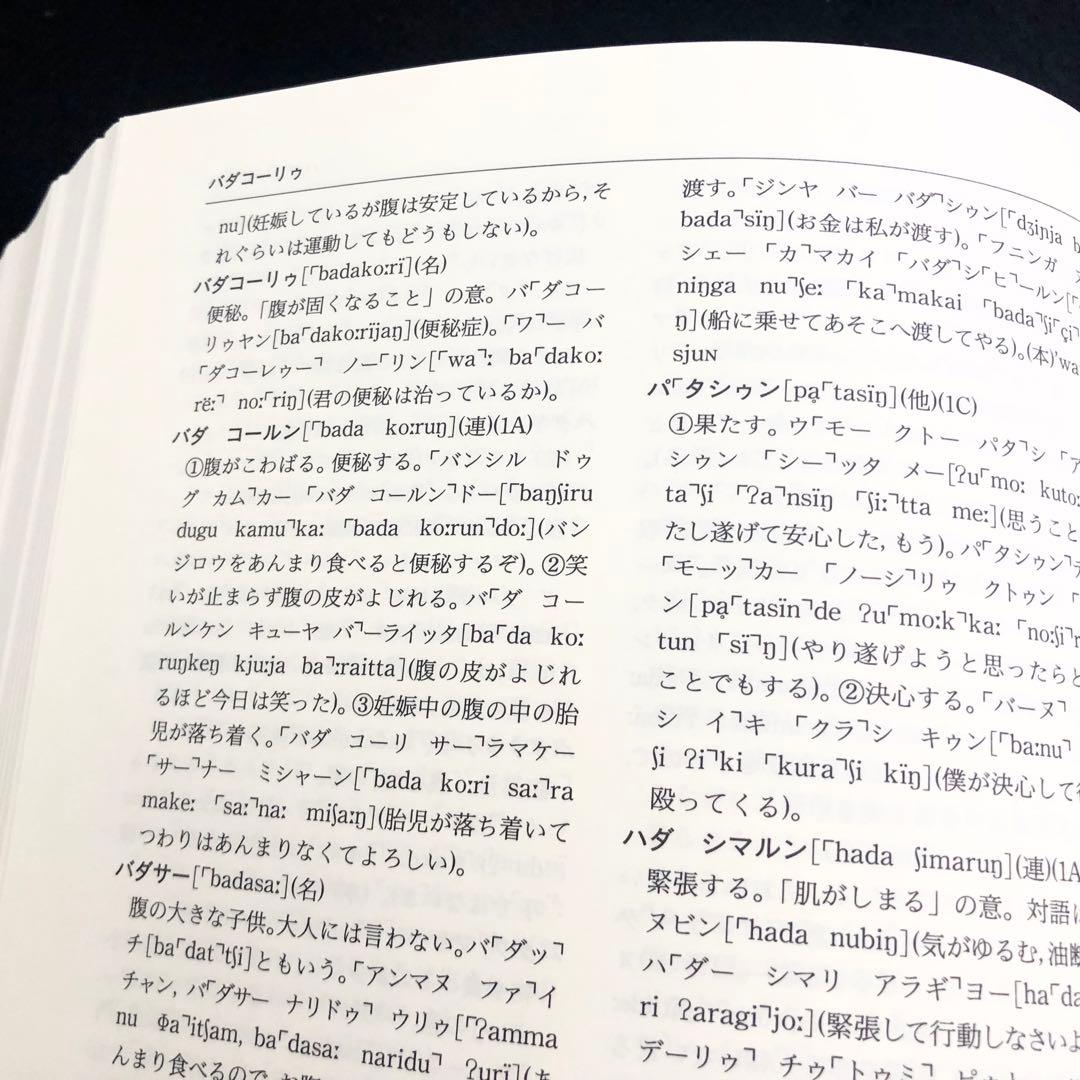 バダコーリゥ
nu](妊娠しているが腹は安定しているから,そ
れぐらいは運動してもどうもしない)。
バダコーリゥ[「badakoːrï](名)
便秘。「腹が固くなること」の意。バ「ダコー
リゥヤン[ba「dakoːrïjaŋ](便秘症)。「ワ㇕ー バ
「ダコーレゥー㇕ ノー「リン[「wa㇕ː ba「dakoː
rëː㇕ noː「riŋ](君の便秘は治っているか)。
バダ コールン[「bada koːruŋ](連)(1A)
①腹がこわばる。便秘する。「バンシル ドゥ
グ カム㇕カー 「バダ コールン㇕ドー[「baŋʃiru
dugu kamu㇕kaː 「bada koːrun㇕doː](バン
ジロウをあんまり食べると便秘するぞ)。②笑
いが止まらず腹の皮がよじれる。バ「ダ コー
ルンケン キューヤ バ㇕ーライッタ[ba「da koː
ruŋkeŋ kjuːja ba㇕ːraitta](腹の皮がよじれ
るほど今日は笑った)。③妊娠中の腹の中の胎
児が落ち着く。「バダ コーリ サー㇕ラマケー
「サー㇕ナー ミシャーン[「bada koːri saː㇕ra
makeː 「saː㇕naː miʃaːŋ](胎児が落ち着いて
つわりはあんまりなくてよろしい)。
バダサー[「badasaː](名)
腹の大きな子供。大人には言わない。バ「ダッ㇕
チ[ba「dat㇕tʃi]ともいう。「アンマヌ ファ㇕イ
チャン, バ「ダサー ナリドゥ㇕ ウリゥ[「ʔamma
nu Φa㇕itʃam, ba「dasaː naridu㇕ ʔurï](あ
んまり食べるので,お腹
渡す。「ジンヤ バー バダ㇕シゥン[「dʒiŋja b
bada㇕sïŋ](お金は私が渡す)。「フニンガ
シェー 「カ㇕マカイ 「バダ㇕シ「ヒ㇕ールン[「
niŋga nu㇕ʃeː 「ka㇕makai 「bada㇕ʃi「çi㇕
ŋ](船に乗せてあそこへ渡してやる)。(本)'wa
sjuɴ
パ「タシゥン[pḁ「tasïŋ](他)(1C)
①果たす。ウ「モー クトー パタ㇕シ 「ア
シゥン 「シー㇕ッタ メー[ʔu「moː kutoː
ta㇕ʃi 「ʔa㇕nsïŋ 「ʃiː㇕tta meː](思うこと
たし遂げて安心した,もう)。パ「タシゥン㇕デ
「モーッ㇕カー 「ノーシ㇕リゥ クトゥン 「
ン[pḁ「tasïn㇕de ʔu「moːk㇕kaː 「noːʃi㇕r
tun 「sï㇕ŋ](やり遂げようと思ったらど
ことでもする)。②決心する。「バーヌ㇕
シ イ㇕キ 「クラ㇕シ キゥン[「baːnu㇕
ʃi ʔi㇕ki 「kura㇕ʃi kïŋ](僕が決心して行
殴ってくる)。
ハダ シマルン[「hada ʃimaruŋ](連)(1A
緊張する。「肌がしまる」の意。対語に
ヌビン[「hada nubiŋ](気がゆるむ,油断
ハ「ダー シマリ アラギ㇕ヨー[ha「da
ri ʔaragi㇕joː](緊張して行動しなさいよ
デーリゥ㇕ チゥ「トゥミ㇕